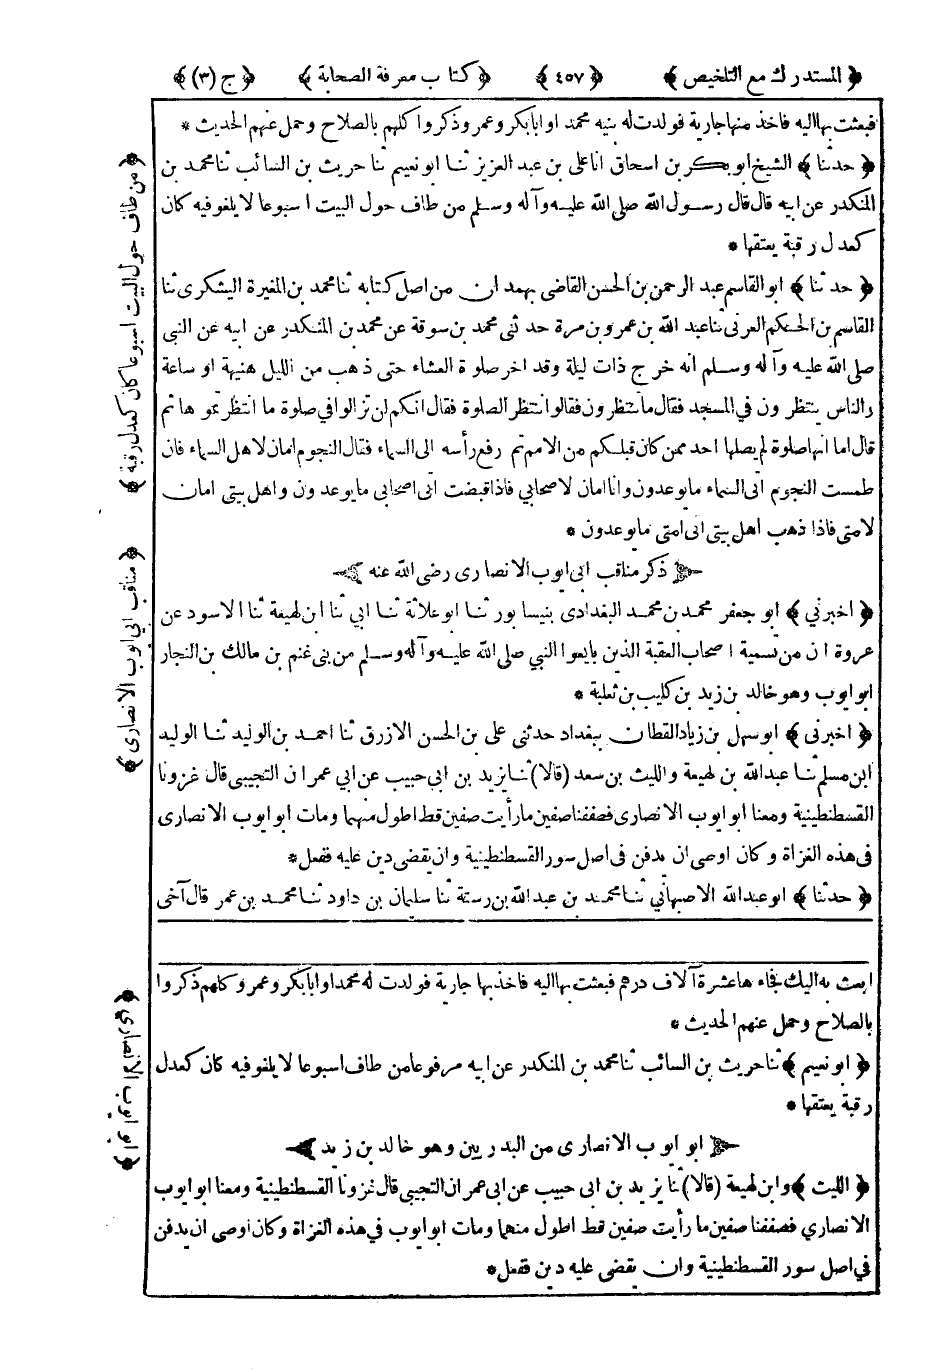 ﴿ المستدرك مع التلخيص ﴾ ﴿ ٤٥٧ ﴾ ﴿ كتاب معرفة الصحابة ﴾ ﴿ ج (٣) ﴾
فبعثت بها اليه فاخذ منها جارية فولدت له بنيه محمد او ابا بكر وعمر وذكروا كلهم بالصلاح وحمل عنهم الحديث *
﴿ حدثنا ﴾ الشيخ ابو بكر بن اسحاق انا علي بن عبد العزيز ثنا ابو نعيم ثنا حريث بن السائب ثنا محمد بن
المنكدر عن ابيه قال قال رسول الله صلى الله عليه وآله وسلم من طاف حول البيت اسبوعا لا يلغو فيه كان
كعدل رقبة يعتقها *
﴿ حدثنا ﴾ ابو القاسم عبد الرحمن بن الحسن القاضى بهمدان من اصل كتابه ثنا محمد بن المغيرة اليشكرى ثنا
القاسم بن الحكم العرنى ثنا عبد الله بن عمرو بن مرة حدثنى محمد بن سوقة عن محمد بن المنكدر عن ابيه عن النبى
صلى الله عليه وآله وسلم انه خرج ذات ليلة وقد اخر صلوة العشاء حتى ذهب من الليل هنيهة او ساعة
والناس ينتظرون في المسجد فقال ما تنتظرون فقالوا ننتظر الصلوة فقال انكم لن تزالوا في صلوة ما انتظرتموها ثم
قال اما انها صلوة لم يصلها احد ممن كان قبلكم من الامم ثم رفع رأسه الى السماء فقال النجوم امان لاهل السماء فان
طمست النجوم اتى السماء ما يوعدون وانا امان لاصحابي فاذا قبضت اتى اصحابي ما يوعدون واهل بيتى امان
لامتى فاذا ذهب اهل بيتى اتى امتى ما يوعدون *
ذكر مناقب ابى ايوب الانصارى رضى الله عنه
﴿ اخبرني ﴾ ابو جعفر محمد بن محمد البغدادى بنيسابور ثنا ابو علاثة ثنا ابي ثنا ابن لهيعة ثنا الاسود عن
عروة ان من تسمية اصحاب العقبة الذين بايعوا النبي صلى الله عليه وآله وسلم من بنى غنم بن مالك بن النجار
ابو ايوب وهو خالد بن زيد بن كليب بن ثعلبة *
﴿ اخبرنى ﴾ ابو سهل بن زياد القطان ببغداد حدثنى على بن الحسن الازرق ثنا احمد بن الوليد ثنا الوليد
ابن مسلم ثنا عبد الله بن لهيعة والليث بن سعد (قالا) ثنا يزيد بن ابى حبيب عن ابي عمران التجيبى قال غزونا
القسطنطينية ومعنا ابو ايوب الانصارى فصففنا صفين ما رأيت صفين قط اطول منهما ومات ابو ايوب الانصارى
فى هذه الغزاة وكان اوصى ان يدفن فى اصل سور القسطنطينية وان يقضى دين عليه ففعل *
﴿ حدثنا ﴾ ابو عبد الله الاصبهاني ثنا محمد بن عبد الله بن رستة ثنا سليمان بن داود ثنا محمد بن عمر قال آخى
ابعث به اليك فجاءها عشرة آلاف درهم فبعثت بها اليه فاخذ بها جارية فولدت له محمد او ابا بكر وعمر وكلهم ذكروا
بالصلاح وحمل عنهم الحديث *
﴿ ابو نعيم ﴾ ثنا حريث بن السائب ثنا محمد بن المنكدر عن ابيه مرفوعا من طاف اسبوعا لا يلغو فيه كان كعدل
رقبة يعتقها *
ابو ايوب الانصارى من البدريين وهو خالد بن زيد
﴿ الليث ﴾ وابن لهيعة (قالا) نا يزيد بن ابى حبيب عن ابى عمران التجيبى قال غزونا القسطنطينية ومعنا ابو ايوب
الانصاري فصففنا صفين ما رأيت صفين قط اطول منهما ومات ابو ايوب في هذه الغزاة وكان اوصى ان يدفن
في اصل سور القسطنطينية وان يقضى عليه دين ففعل *
﴿ من طاف حول البيت اسبوعا كان كعدل رقبة ﴾
﴿ مناقب ابي ايوب الانصاري ﴾
﴿ ابو ايوب الانصاري ﴾